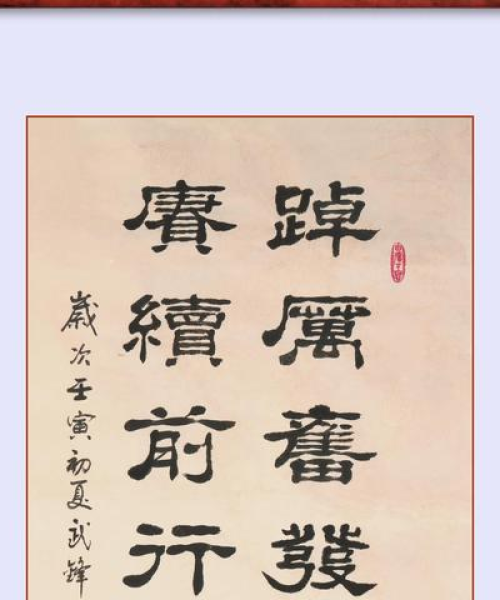 踔厲奮發
賡續前行
歲次壬寅初夏武鋒